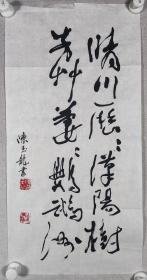 晴川歷歷漢陽樹
芳艸萋萋鸚鵡洲
陳玉龍書